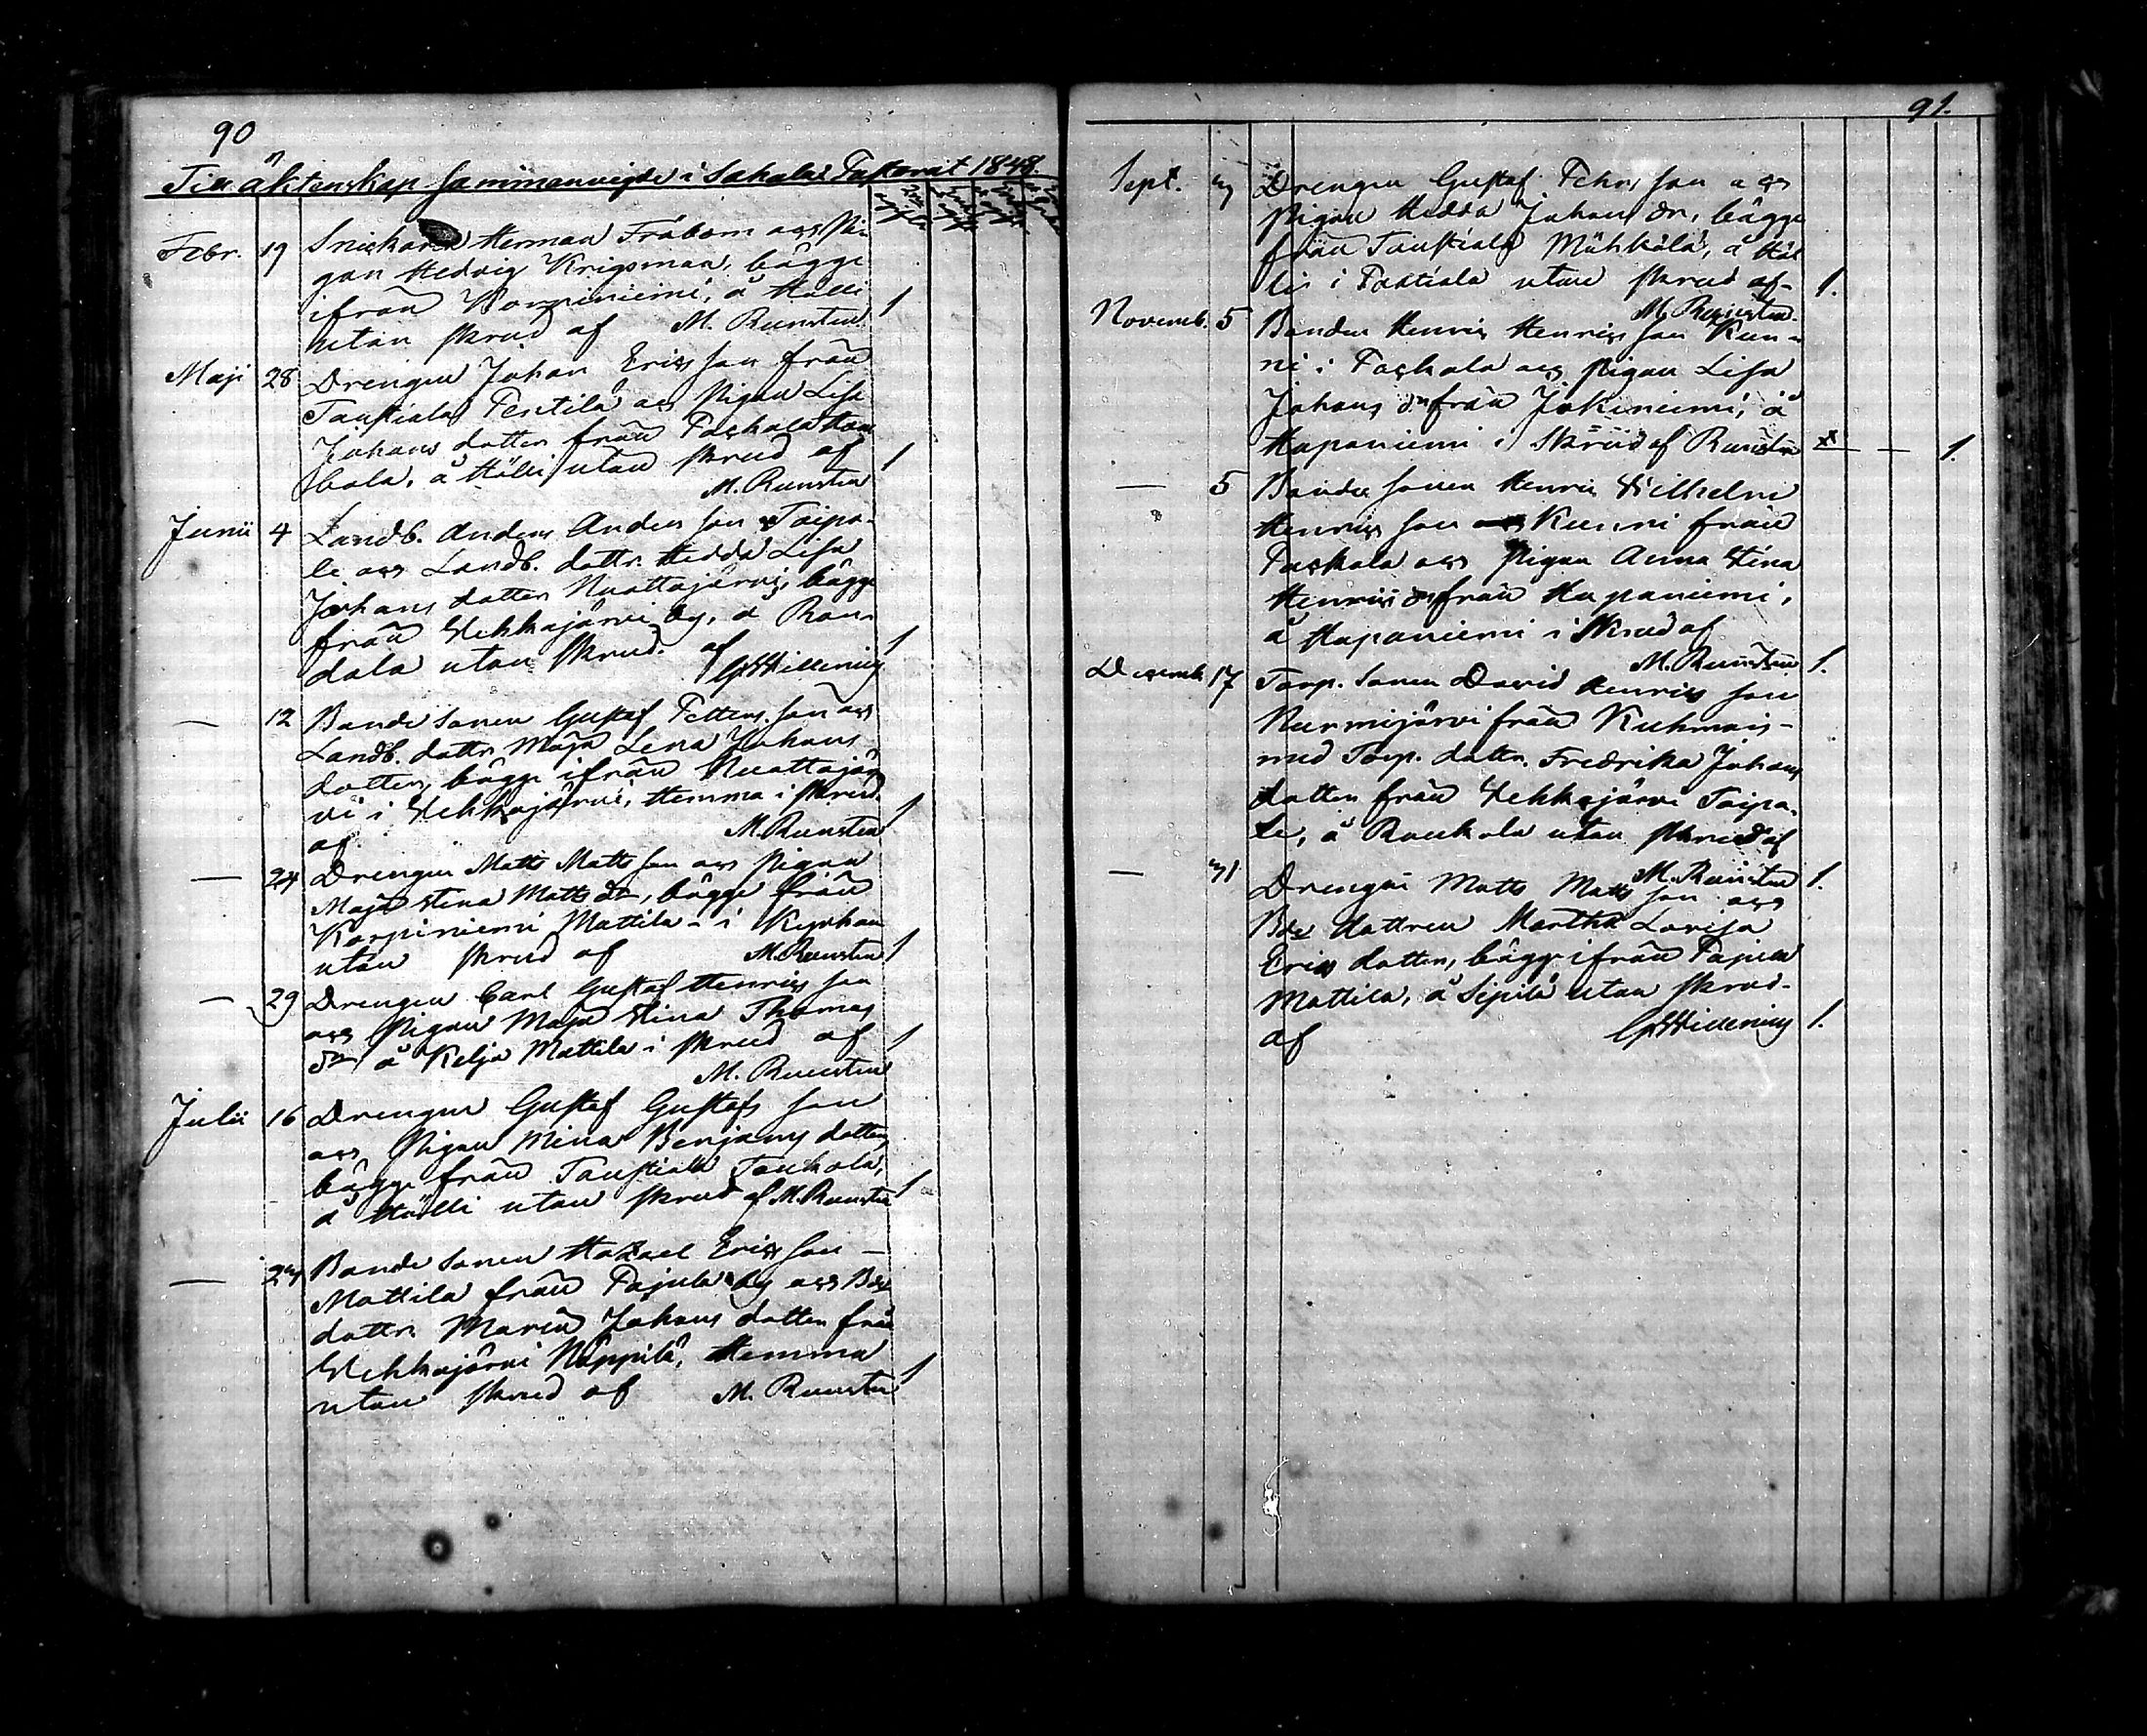 90
Till äktenskap sammanvigde i Sahalax Pastorat 1848.
Febr. 19 Snickaren Herman Fråbom och Pi-
gan Hedvig Krigsman, bägge
ifrån Korpiniemi, å Hölli
utan skrud af M. Runsten 1
Maji 28 Drengen Johan Ericsson från
Taustiala Penttilä och Pigan Lisa
Johans dotter från Paskala
bala, å Hölli utan skrud af
M. Runsten 1
Junii 4 Landb. Anders Anders son Taipa-
le och Landb. dottr. Hedda Lisa
Johans dotter Nuottajärvi, bägge
från Vehkajärvi by, å
dala utan skrud af
1
— 12 Bonde sonen Gustaf Petters son och
Landb. dottr Maja Lena Johans
dotter, bägge ifrån Nuottajär
vi i Vehkajärvi, Hemma i skrud
af M. Runsten 1
— 24 Drengen Matts Matts son och Pigan
Maja Stina Matts dr, bägge från
Korpiniemi Mattila - i Kyrkan
utan skrud af M. Runsten 1
— 29 Drengen Carl Gustaf Henrics son
och Pigan Maja Stina Thomas
dr å Kelja Mattila i skrud af 1
M. Runsten
Julii 16 Drengen Gustaf Gustafs son
och Pigan Mina Benjams dotter
bägge från Taustiala Toukola,
å Hölli utan skrud af M. Runsten 1
— Bonde sonen Hazael Erics son —
Mattila från Pajula by och Bde
dottr. Maria Johans dotter från
Vehkajärvi Näppilä, Hemma
utan skrud af M. Runsten 1
91.
Sept. 3 Drengen Gustaf Fehrs son och
Pigan Hedda Johans dr, bägge
från Taustiala Mähkälä, å Höl
li i utan skrud af 1.
M. Runsten
Novemb. 5 Bonden Henric Henrics son Kun-
ni i Paskala och Pigan Lisa
Johans dr från Jokiniemi, å
Haponiemi i Skrud af Runsten — — 1.
— 5 Bonde sonen Henric Wilhelm
Henrics son Kunni från
Paskala och Pigan Anna Stina
Henrics dr från Haponiemi,
å Haponiemi i Skrud af
M. Runsten 1.
Decemb. 17 Torp. sonen David Henrics son
Nurmijärvi från Kuhmois -
med Torp. dottr. Fredrika Johans
dotter från Vehkajärvi Taipa-
le, å Roukola utan skrud af
M. Runsten 1.
— 31 Drengen Matts Matts son och
Bde dottren Martha Lovisa
Erics dotter, bägge ifrån Pajula
Mattila, å Sipilä utan skrud
af 1.